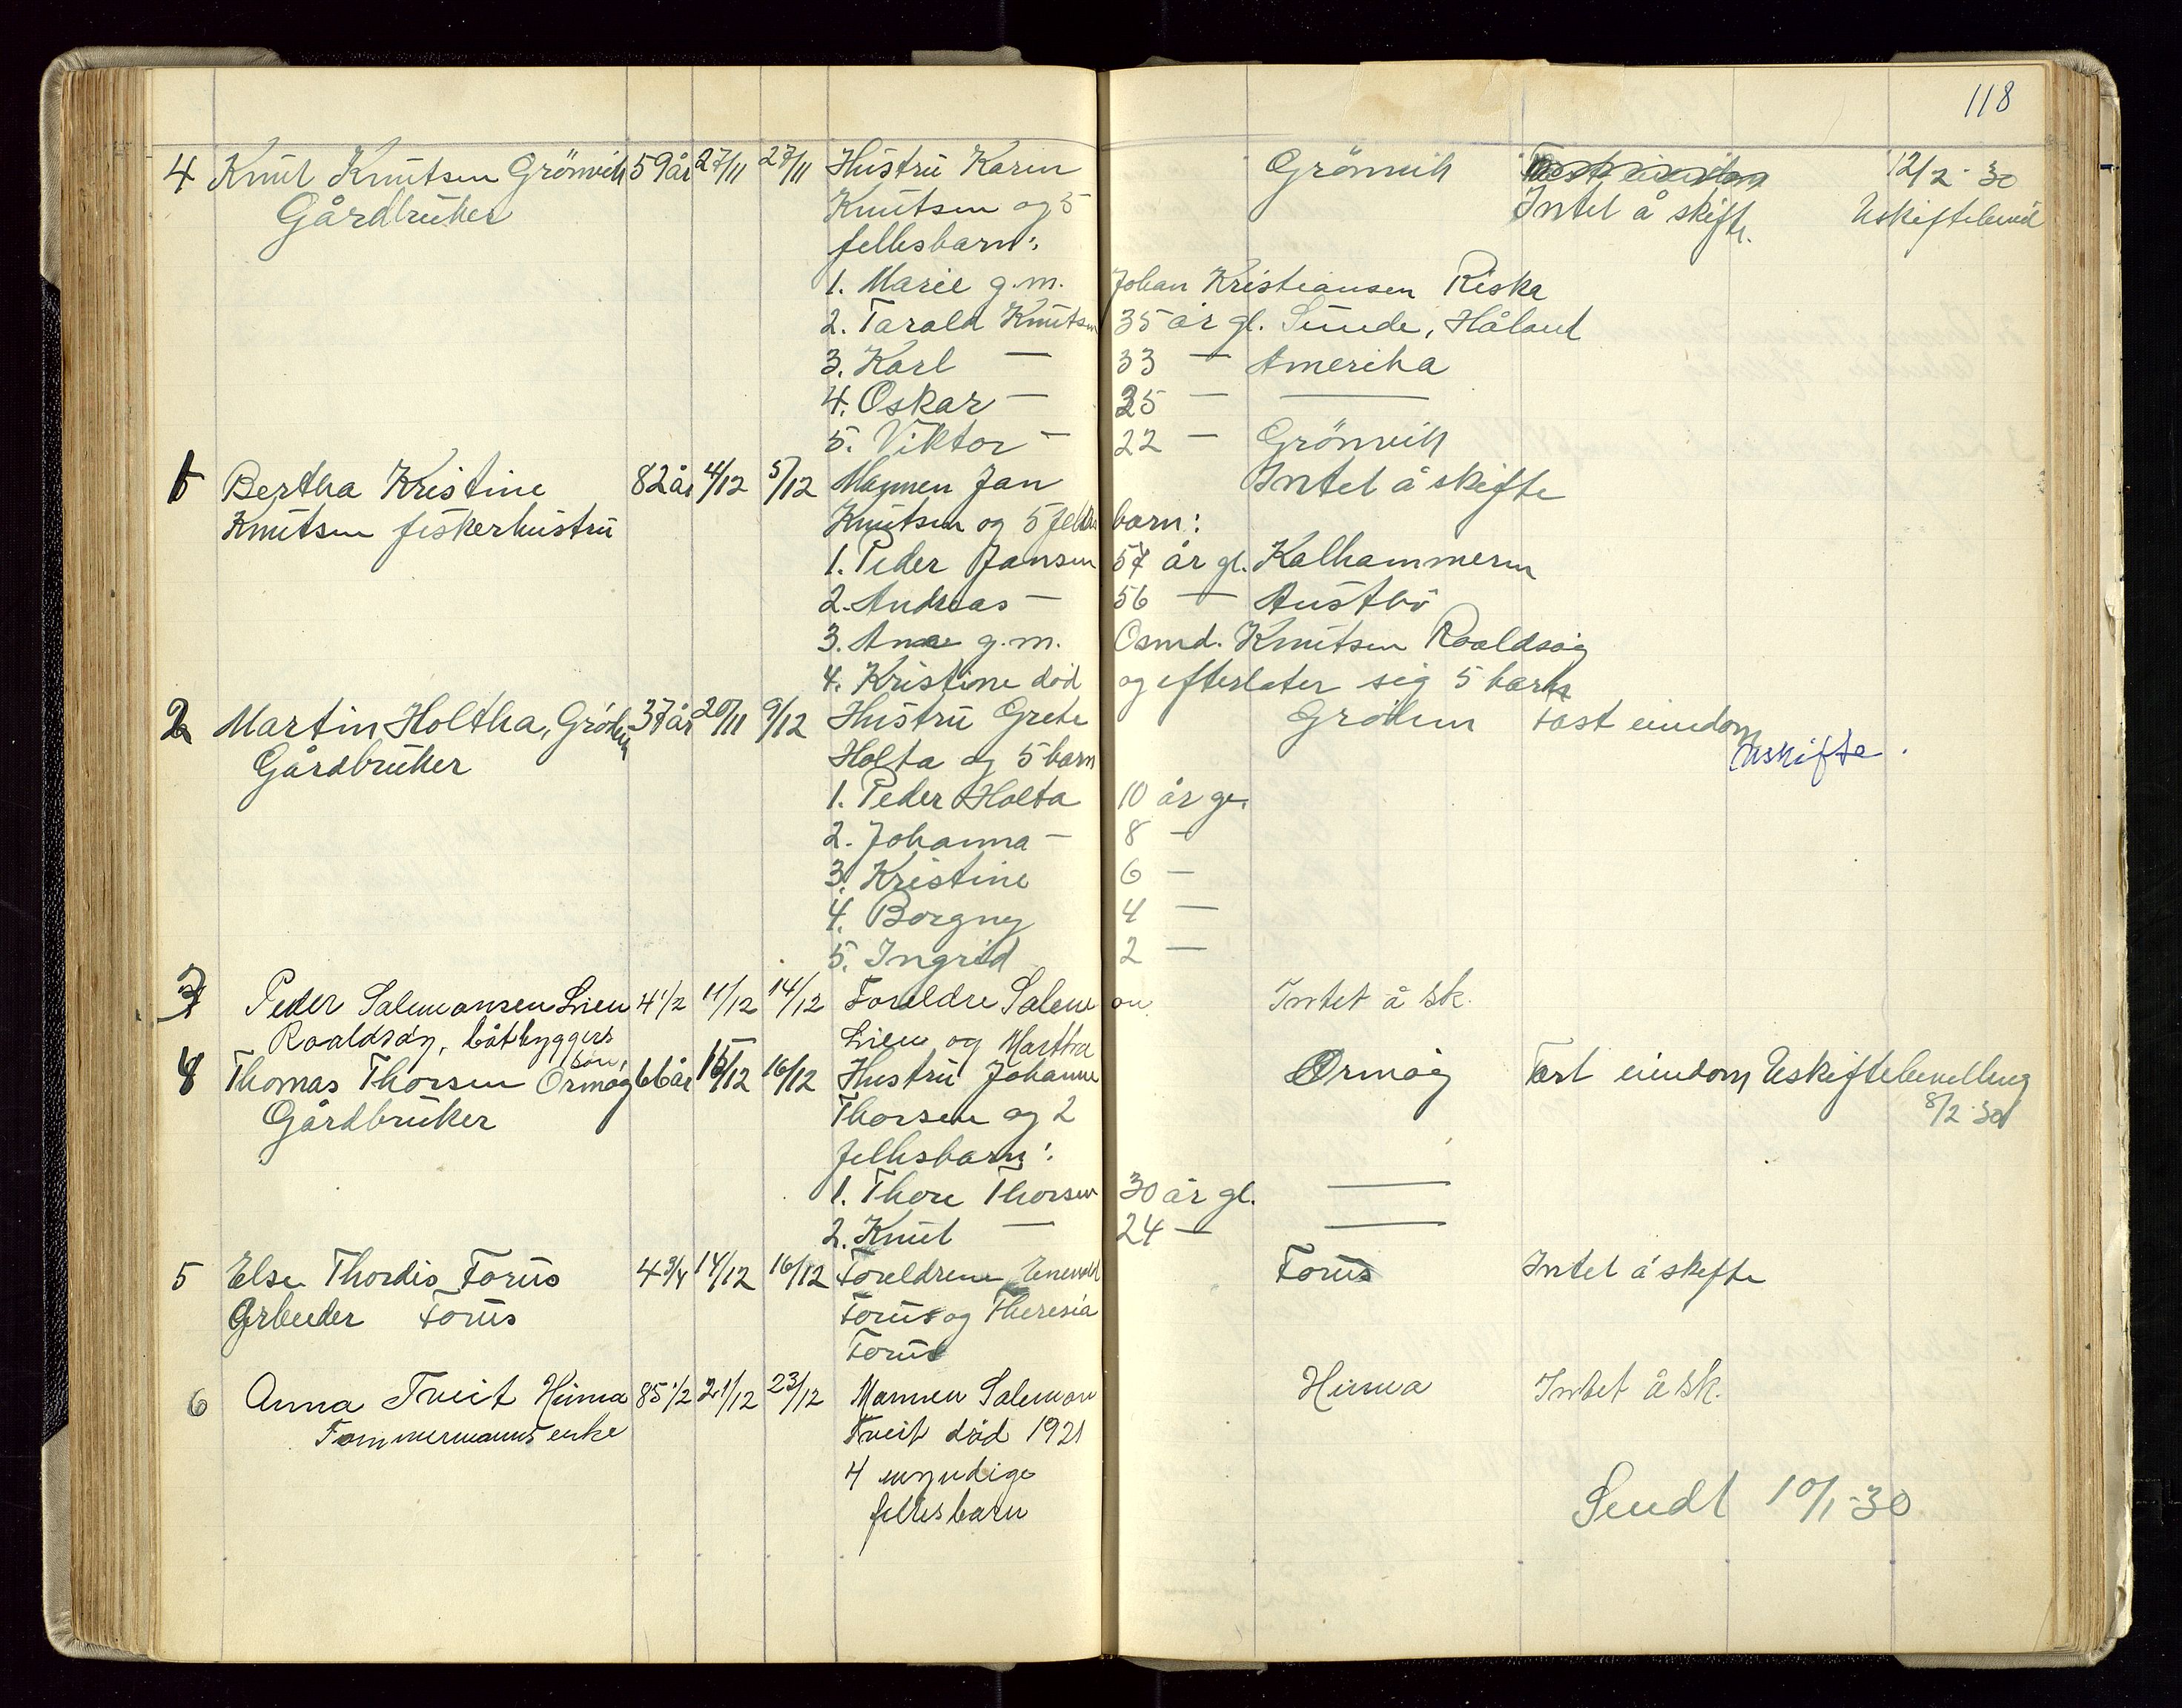 118
4 Knut Knutsen Grönvik 59 år 27/11 27/11 Hustru Karen Grönvik 12/2-30
Gårdbruker Knutsen og 5 Intet å skifte. Uskiftebevil
fellesbarn:
1. Marie g.m. Johan Kristiansen Riska
2. Tarald Knutsen 35 år gl. Sunde, Håland
3. Karl — 33 — Amerika
4. Oskar — 25 — —
5. Viktor — 22 — Grönvik
1 Bertha Kristine 82 år 4/12 5/12 Mannen Jan Intet å skifte
Knutsen fiskerhustru Knutsen og 5 felles barn:
1. Peder Jansen 57 år gl. Kalhammeren
2. Andreas — 56 — Austbö
3. Ana g.m. Osmd. Knutsen Roaldsöy
4. Kristine död og efterlater sig 5 barn
2 Martin Holtha, Grödem 37 år 20/11 9/12 Hustru Grete Grödem Fast eiendom
Gårdbruker Holta og 5 barn Uskifte.
1. Peder Holta 10 år gl.
2. Johanna — 8 —
3. Kristine 6 —
4. Borgny 4 —
5. Ingrid 2 —
3 Peder Salemonsen Lien 4 1/2 11/12 14/12 Foreldre Salemon Intet å sk.
Roaldsöy, båtbyggers sön, Lien og Martha
4 Thomas Thorsen Ormöy 66 år 15/12 16/12 Hustru Johanne Ormöy Fast eiendom Uskiftebevilling
Gårdbruker Thorsen og 2 8/2-30
fellesbarn:
1. Thore Thorsen 30 år gl. —
2. Knut — 24 — —
5 Else Thordis Forus 4 3/4 14/12 16/12 Foreldrene Enevald Forus Intet å skifte
Arbeider Forus Forus og Theresia
Forus
6 Anna Tveit Hinna 85 1/2 21/12 23/12 Mannen Salemon Hinna Intet å sk.
Tømmermanns enke Tveit død 1921
4 myndige
fellesbarn
Sendt 10/1-30